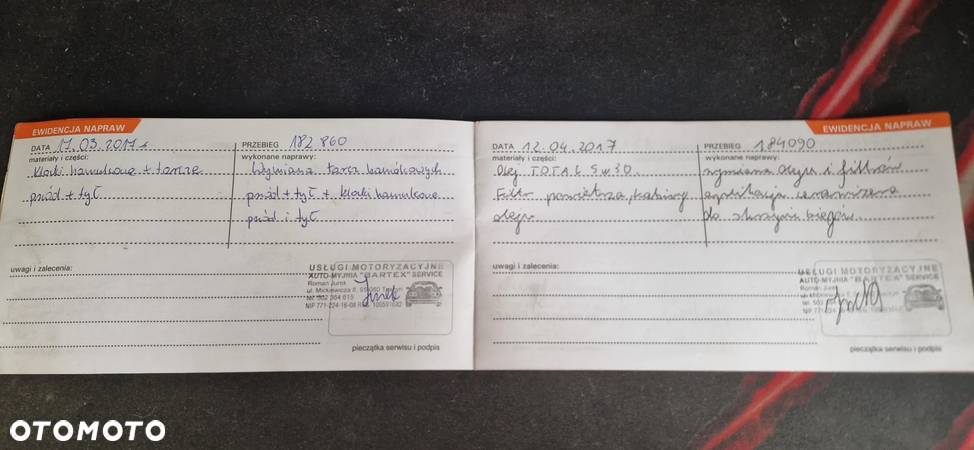 EWIDENCJA NAPRAW
DATA 17.03.2017 r PRZEBIEG 182 860
materiały i części: wykonane naprawy:
klocki hamulcowe + tarcze Wymiana tarcz hamulcowych
przód + tył przód + tył + klocki hamulcowe
przód i tył
uwagi i zalecenia:
USŁUGI MOTORYZACYJNE
AUTO-MYJNIA "BARTEX" SERVICE
Roman Jurek
ul. Mickiewicza 8,
tel. 502 364 615
NIP 771-224-16-08
pieczątka serwisu i podpis
EWIDENCJA NAPRAW
DATA 12.04.2017 PRZEBIEG 184090
materiały i części: wykonane naprawy:
Olej TOTAL 5w30 wymiana oleju i filtrów
Filtr powietrza, kabiny aplikacja ceramizera
oleju do skrzyni biegów
uwagi i zalecenia:
USŁUGI MOTORYZACYJNE
AUTO-MYJNIA "BARTEX" SERVICE
Roman Jurek
pieczątka serwisu i podpis
OTOMOTO